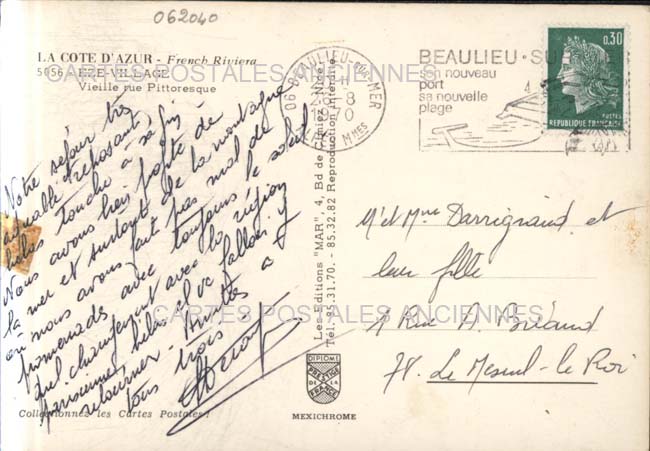 062040
LA COTE D'AZUR - French Riviera
5056 - EZE-VILLAGE
Vieille rue Pittoresque
CARTES POSTALES ANCIENNES
Notre séjour très
agréable et reposant,
hélas touche à sa fin
Nous avons bien profité de
la mer et surtout de la montagne
où nous avons fait pas mal de
promenades avec toujours le soleil.
quel changement avec la région
parisienne hélas il va falloir y
retourner. Amitiés à
tous trois
Collectionnez les Cartes Postales !
Les Editions "MAR" 4, Bd de Cimiez - Nice
Tél. 85.31.70. - 85.32.82 Reproduction interdite
DIPLOME
PRESTIGE
DE LA
FRANCE
MEXICHROME
06 BEAULIEU-SUR-MER
8
70
A. MMES
BEAULIEU-SU
son nouveau
port
sa nouvelle
plage
0,30
POSTES
REPUBLIQUE FRANÇAISE
M et Mme Darrigrand et
leur fille
Rue A. Briand
78. Le Mesnil-le Roi
CARTES POSTALES ANCIENNES